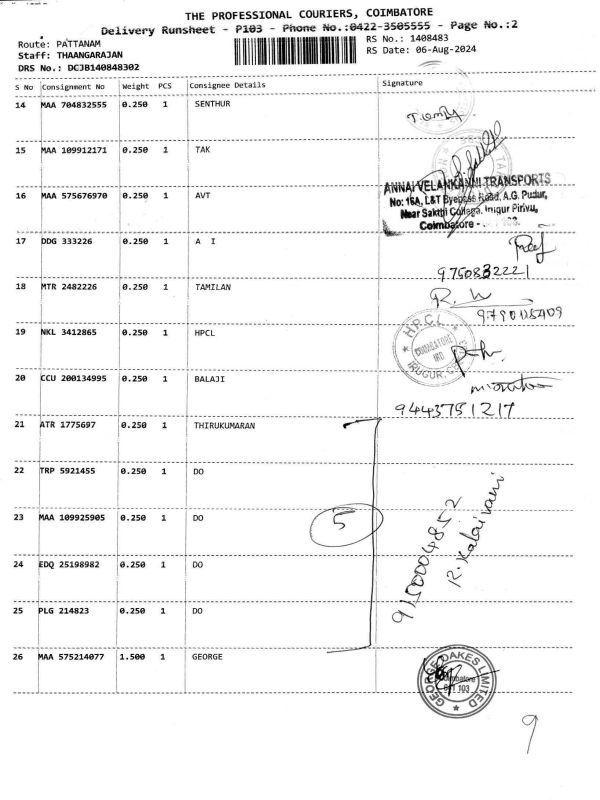 THE PROFESSIONAL COURIERS, COIMBATORE
Delivery Runsheet - P103 - Phone No.:0422-3505555 - Page No.:2
Route: PATTANAM RS No.: 1408483
Staff: THAANGARAJAN RS Date: 06-Aug-2024
DRS No.: DCJB140848302
S No Consignment No Weight PCS Consignee Details Signature
14 MAA 704832555 0.250 1 SENTHUR
15 MAA 109912171 0.250 1 TAK
16 MAA 575676970 0.250 1 AVT
ANNAI VELANKANNI TRANSPORTS
No: 16A, L&T Byepass Road, A.G. Pudur,
Near Sakthi College, Irugur Pirivu,
Coimbatore -
17 DDG 333226 0.250 1 A I
9750832221
18 MTR 2482226 0.250 1 TAMILAN
19 NKL 3412865 0.250 1 HPCL
H.P.C.L.
COIMBATORE
IRUGUR
20 CCU 200134995 0.250 1 BALAJI
9443751217
21 ATR 1775697 0.250 1 THIRUKUMARAN
22 TRP 5921455 0.250 1 DO
23 MAA 109925905 0.250 1 DO
5
9150004852
R. Kalaivani
24 EDQ 25198982 0.250 1 DO
25 PLG 214823 0.250 1 DO
26 MAA 575214077 1.500 1 GEORGE
GEORGE OAKES LIMITED
Coimbatore
641 103
9